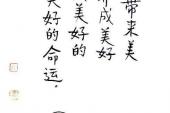 帶来美
成美好
美好的
美好的命运。